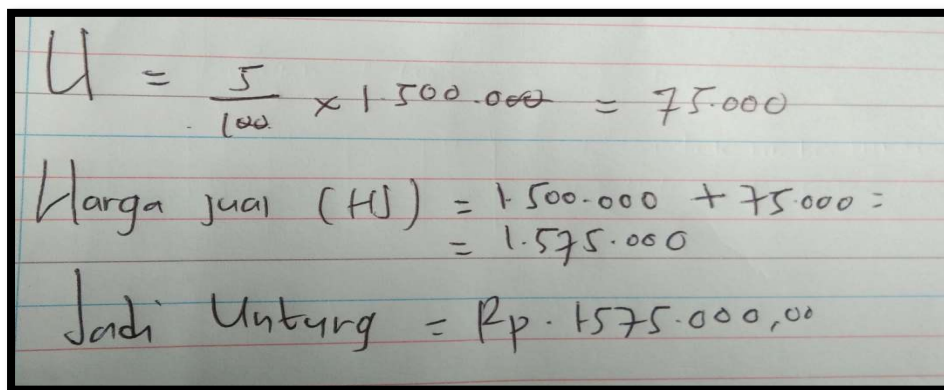 U = 5/100 x 1.500.000 = 75.000
Harga jual (HJ) = 1.500.000 + 75.000 =
= 1.575.000
Jadi Untung = Rp. 1575.000,00